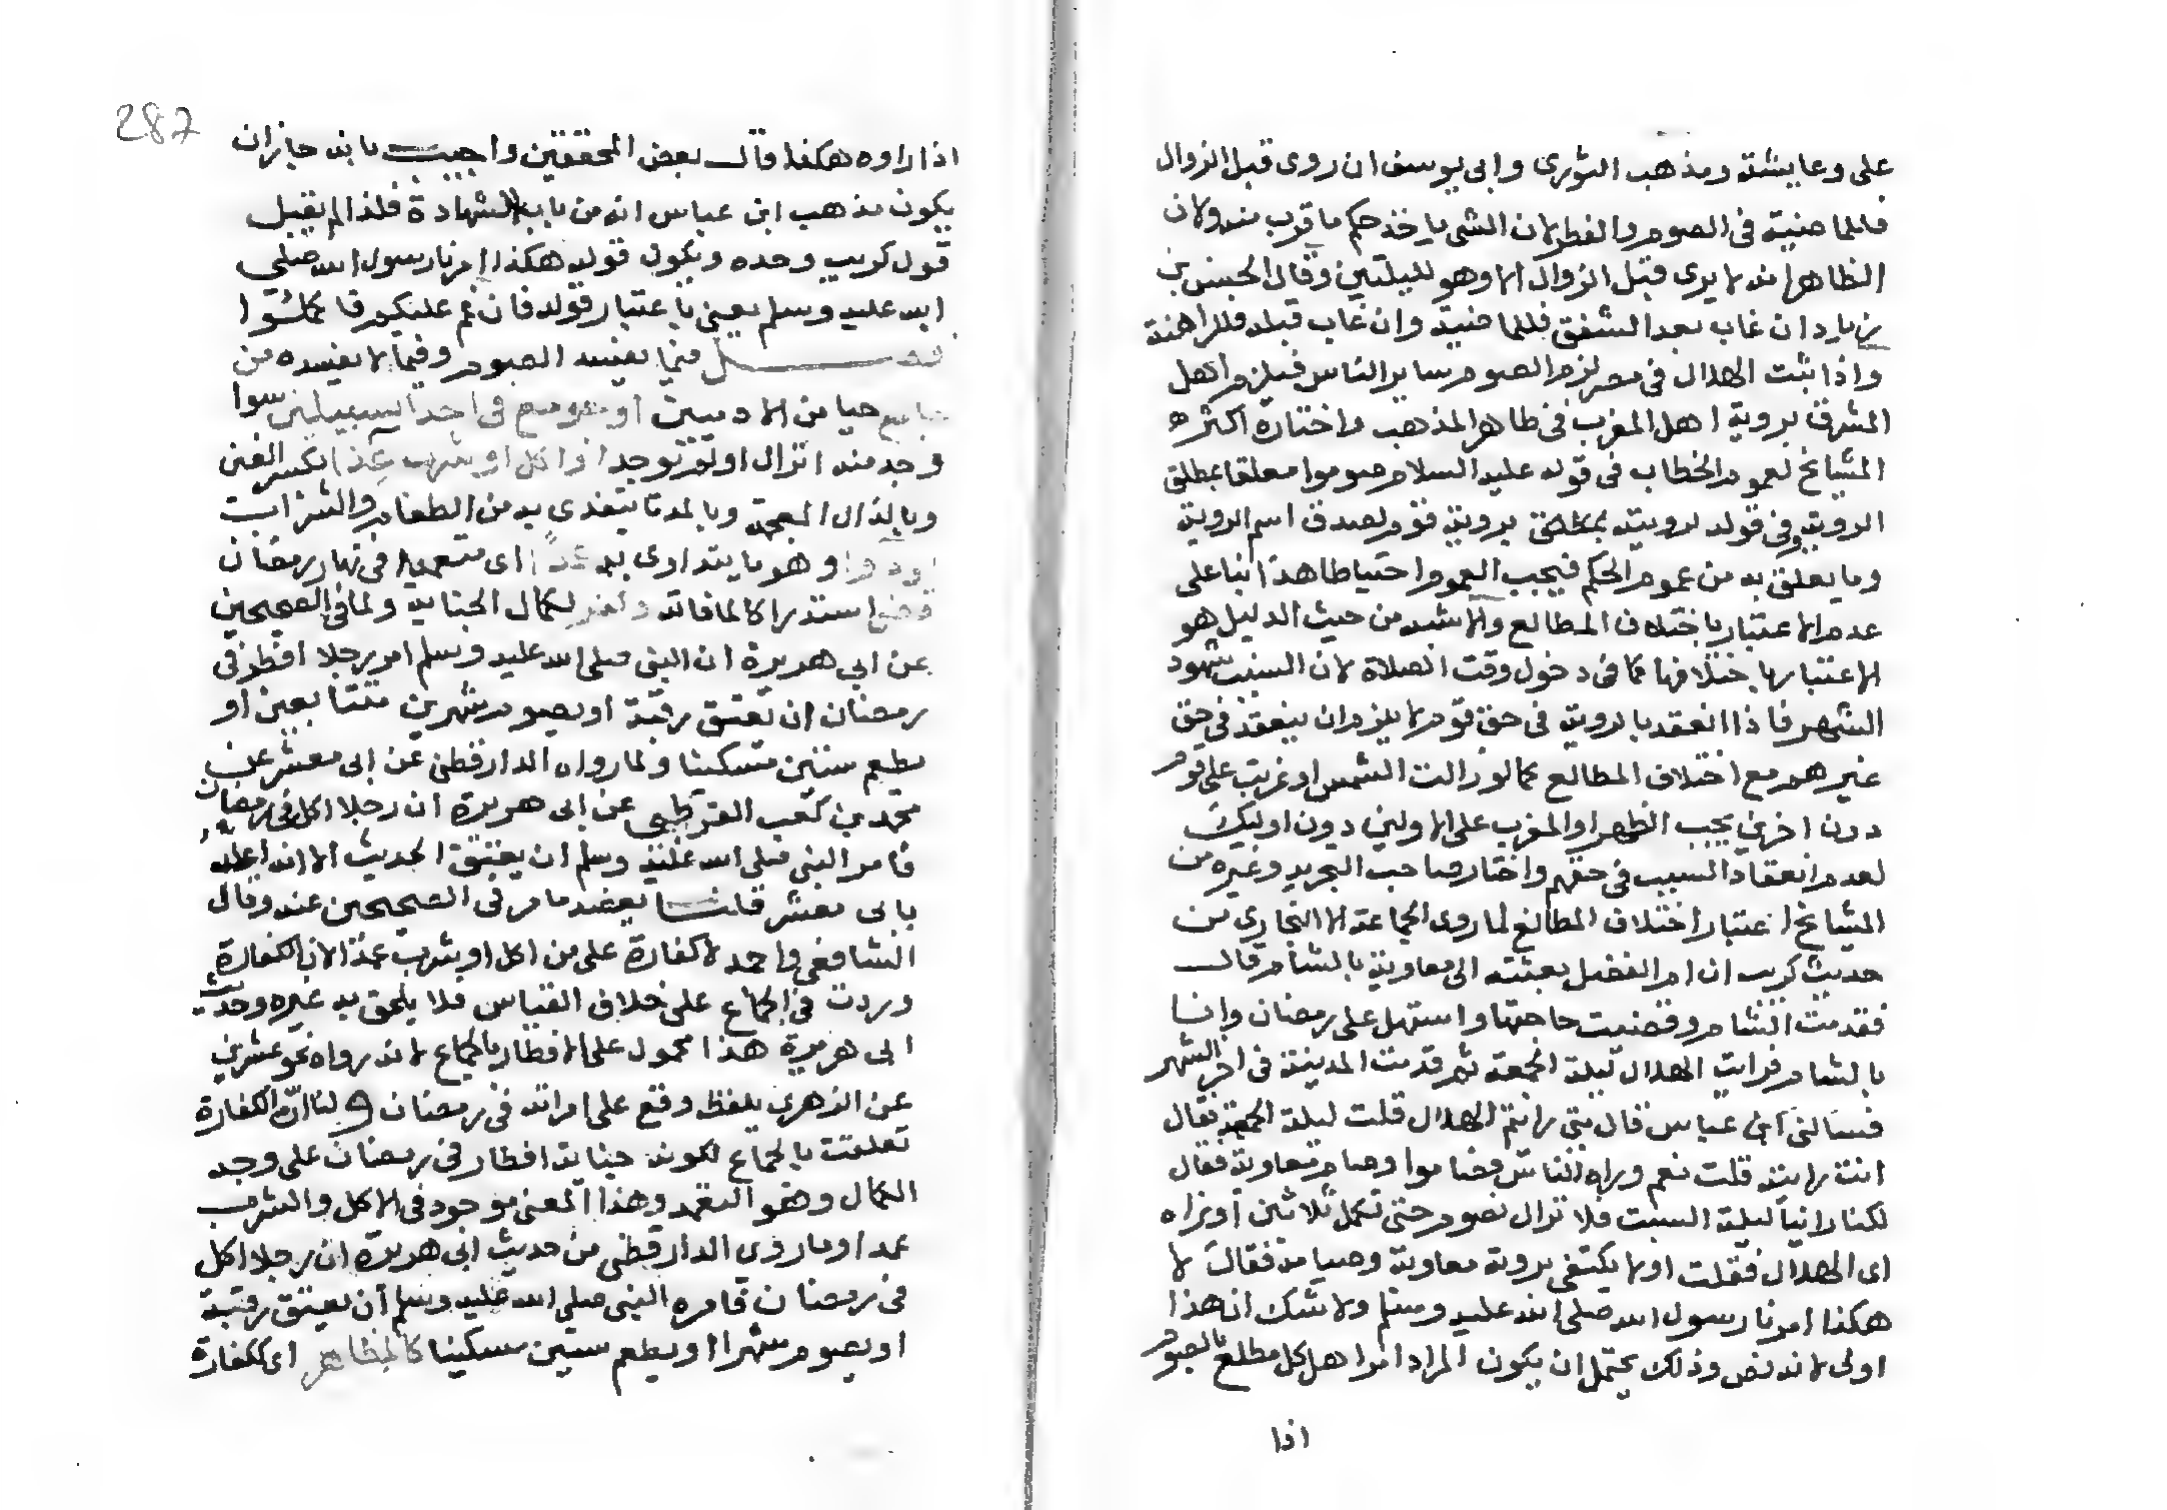 على وعايشة ومذهب الثورى وابى يوسف ان روى قبل الزوال
فللماضية فى الصوم والفطر لان الشى ياخذ حكم ما قرب منه ولان
الظاهر انه لا يرى قبل الزوال الا وهو لليلتين وقال الحسن بن
زياد ان غاب بعد الشفق فللماضية وان غاب قبله فللراهنة
واذا ثبت الهلال فى مصر لزم الصوم ساير الناس فيلزم اهل
المشرق بروية اهل المغرب فى ظاهر المذهب واختاره اكثر
المشايخ لعموم الخطاب فى قوله عليه السلام صوموا معلقا بمطلق
الروية وفى قوله لرويته بمطلق بروية قوم يصدق اسم الروية
وما يعلق به من عموم الحكم فيجب العموم احتياطا هذا بنا على
عدم الاعتبار باختلاف المطالع والاشبه من حيث الدليل هو
الاعتبار باختلافها كما فى دخول وقت الصلاة لان السبب شهود
الشهر فاذا انعقد بالروية فى حق قوم لا يلزم ان ينعقد فى حق
غيرهم مع اختلاف المطالع كما لو زالت الشمس او غربت على قوم
دون اخرين يجب الظهر او المغرب على الاولين دون اوليك
لعدم انعقاد السبب فى حقهم واختار صاحب التجريد وغيره من
المشايخ اعتبار اختلاف المطالع لما روى الجماعة الا البخارى من
حديث كريب ان ام الفضل بعثته الى معاوية بالشام قال
فقدمت الشام وقضيت حاجتها واستهل على رمضان وانا
بالشام فرايت الهلال ليلة الجمعة ثم قدمت المدينة فى اخر الشهر
فسالنى ابن عباس قال متى رايتم الهلال قلت ليلة الجمعة فقال
انت رايته قلت نعم وراه الناس فصاموا وصام معاوية فقال
لكنا رايناه ليلة السبت فلا نزال نصوم حتى نكمل ثلاثين او نراه
اى الهلال فقلت اولا يكتفى بروية معاوية وصيامه فقال لا
هكذا امرنا رسول الله صلى الله عليه وسلم ولا شك ان هذا
اولى لانه نص وذلك يحتمل ان يكون المراد امر اهل كل مطلع بالصوم
اذا
287
اذا راوه هكذا قال بعض المحققين واجيب بانه جاز ان
يكون مذهب ابن عباس انه من باب الشهادة فلذا لم يقبل
قول كريب وحده ويكون قوله هكذا امرنا رسول الله صلى
الله عليه وسلم يعنى باعتبار قوله فان غم عليكم فاكملوا
فصل فيما يفسد الصوم وفيما لا يفسده من
جامع حيا من الادميين او جومع فى احد السبيلين سوا
وجد منه انزال او لم يوجد او اكل او شرب غذا بكسر الغين
وبالذال المعجمة وبالمد ما يتغذى به من الطعام والشراب
او دوا وهو ما يتداوى به عمدا اى متعمدا فى نهار رمضان
قضى استدراكا لما فاته وكفر لكمال الجناية ولما فى الصحيحين
عن ابى هريرة ان النبى صلى الله عليه وسلم امر رجلا افطر فى
رمضان ان يعتق رقبة او يصوم شهرين متتابعين او
يطعم ستين مسكينا ولما رواه الدارقطنى عن ابى معشر عن
محمد بن كعب القرظى عن ابى هريرة ان رجلا اكل فى رمضان
فامر النبى صلى الله عليه وسلم ان يعتق الحديث الا انه اعله
بابى معشر قلنا يعضد ما مر فى الصحيحين عنه وقال
الشافعى واحمد لا كفارة على من اكل او شرب عمدا لان الكفارة
وردت فى الجماع على خلاف القياس فلا يلحق به غيره وحديث
ابى هريرة هذا محمول على الافطار بالجماع لانه رواه نحو عشرين
عن الزهرى بلفظ وقع على امراته فى رمضان ولنا ان الكفارة
تعلقت بالجماع لكونه جناية افطار فى رمضان على وجه
الكمال وهو التعمد وهذا المعنى موجود فى الاكل والشرب
عمدا وما روى الدارقطنى من حديث ابى هريرة ان رجلا اكل
فى رمضان فامره النبى صلى الله عليه وسلم ان يعتق رقبة
او يصوم شهرا او يطعم ستين مسكينا كالمظاهر اى ككفارة